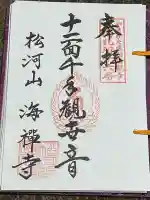 奉拝
十一面千手観世音
松河山 海禅寺